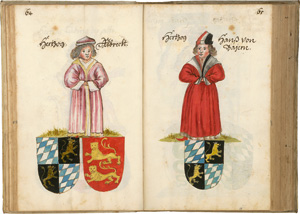 60
Herzog Albrecht.
61
Herzog Hanns von
Bayern.